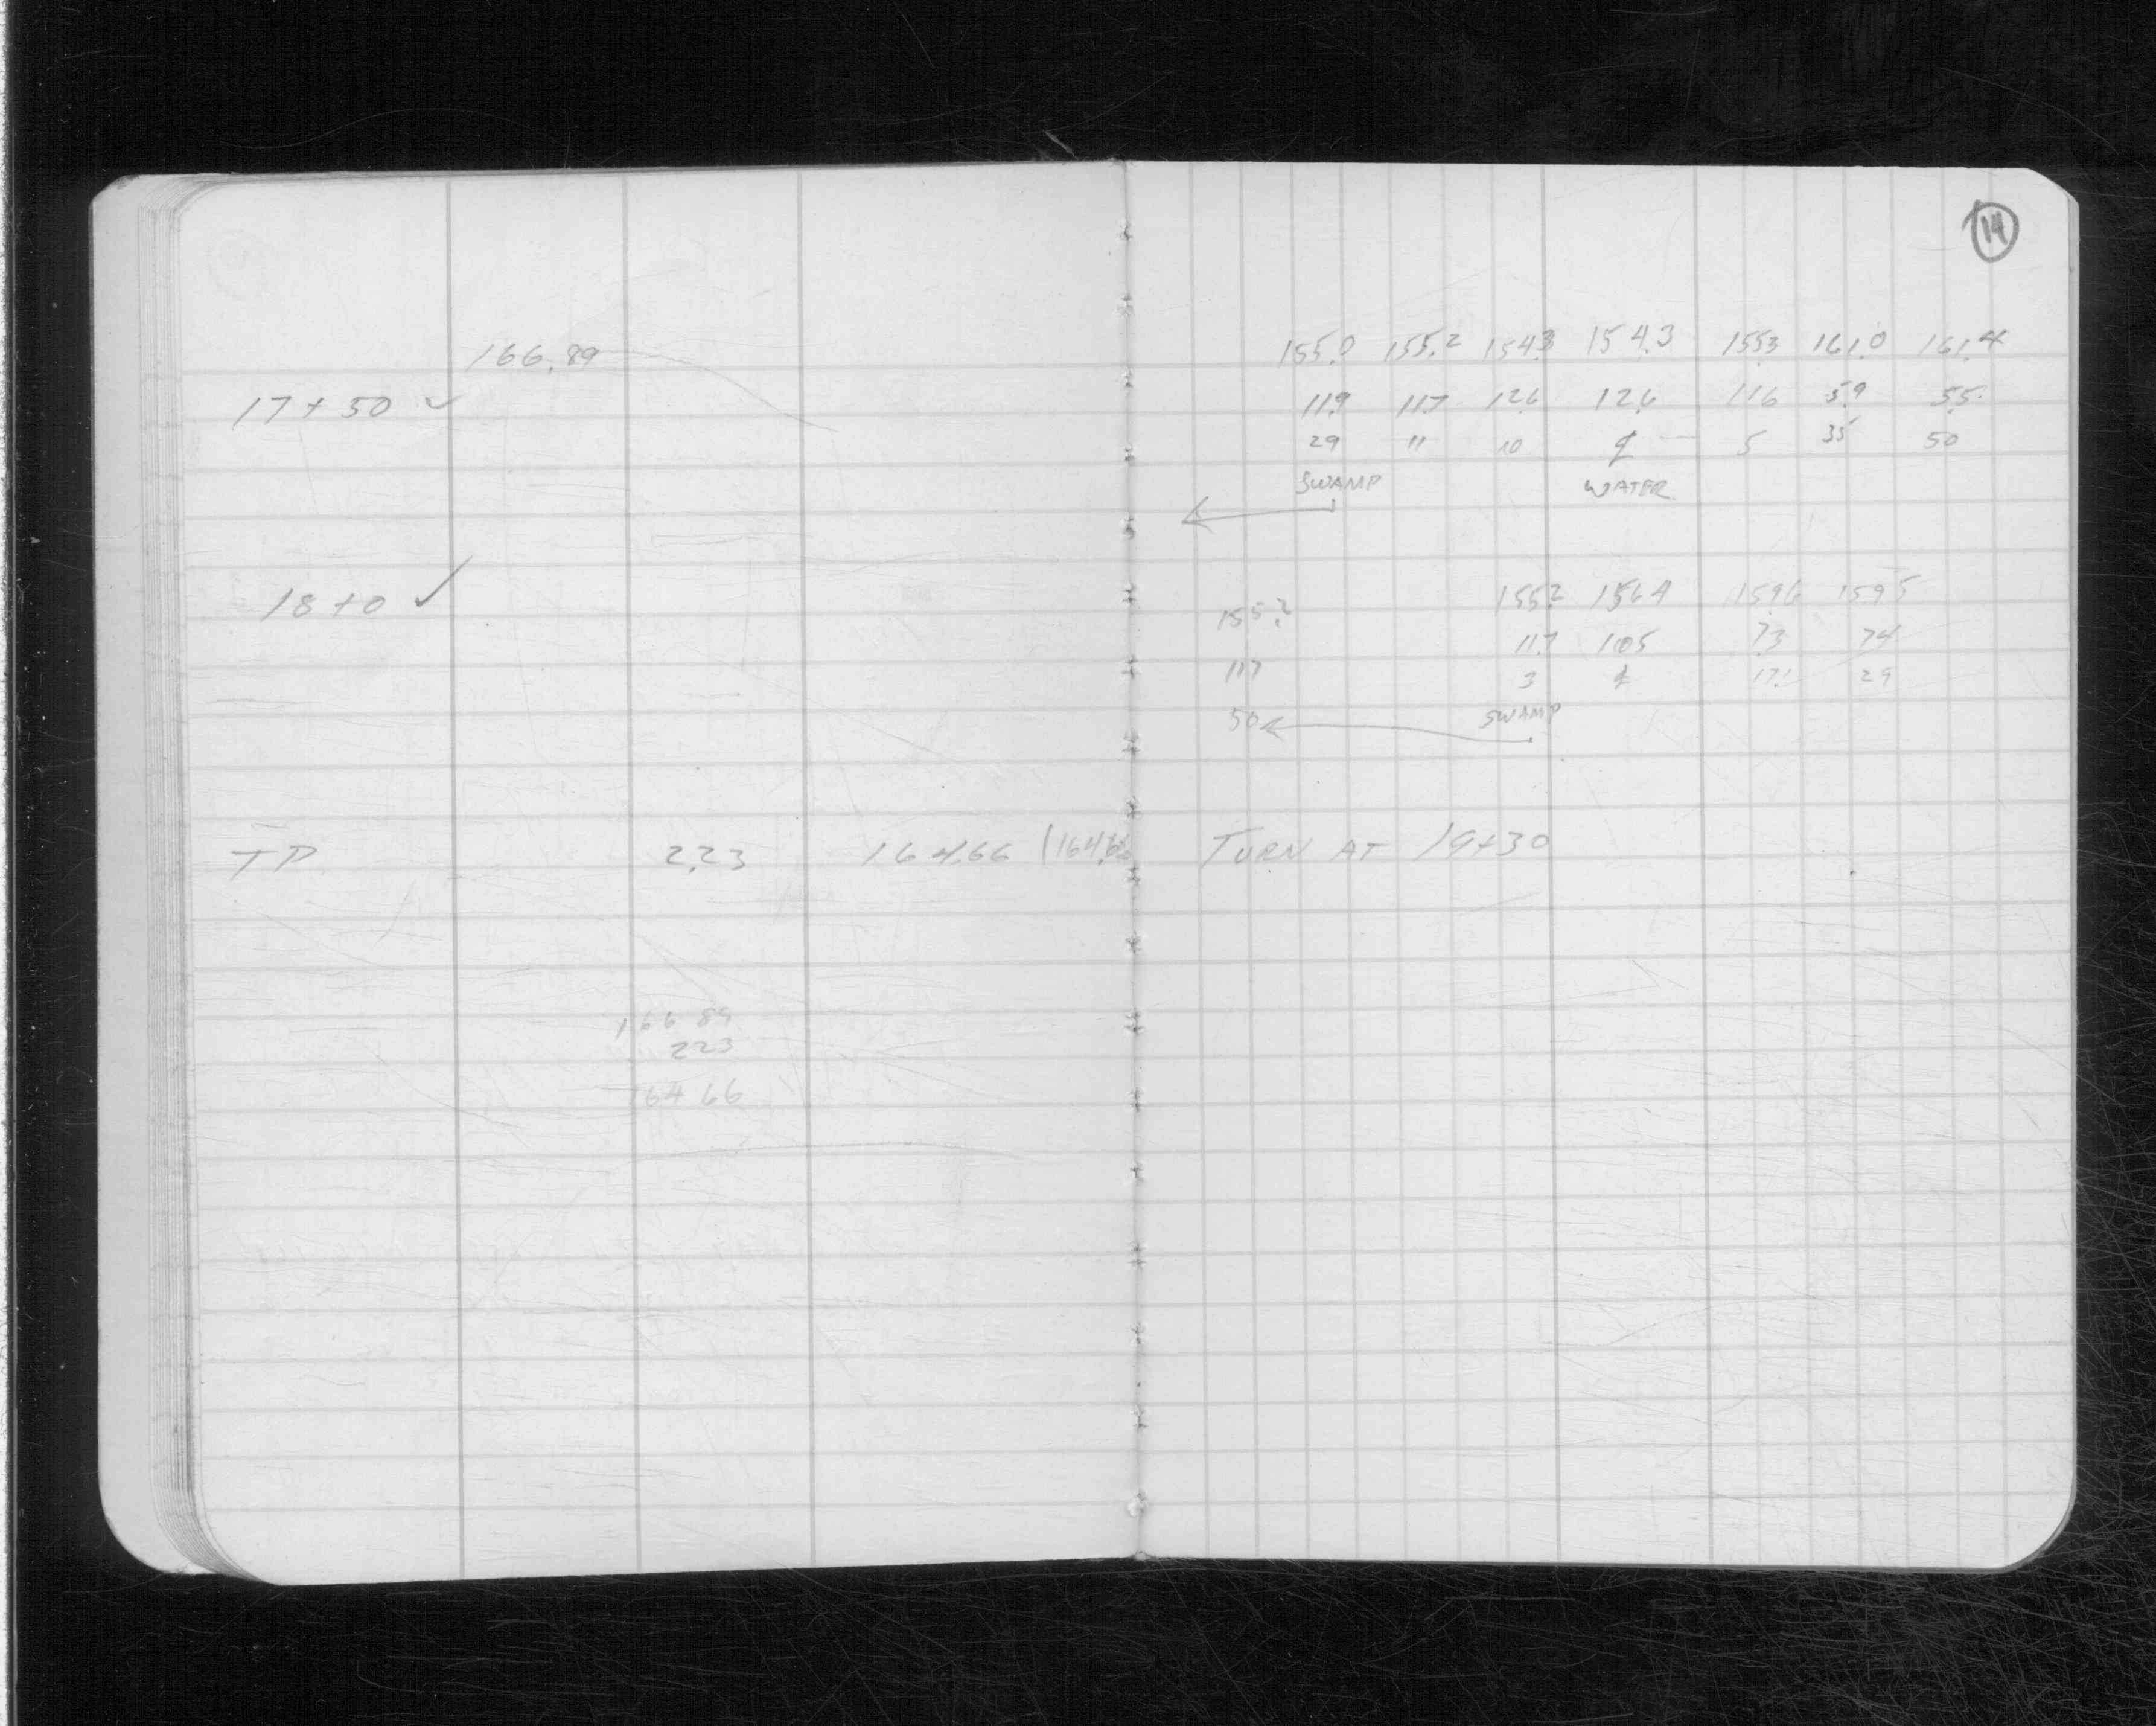 14
166.89
17+50 ✓
155.0 155.2 154.3 154.3 155.3 161.0 161.4
11.9 11.7 12.6 12.6 11.6 5.9 5.5
29 11 10 ℄ 5 35 50
SWAMP WATER
18+0 ✓
155.2 155.2 156.4 159.6 159.5
11.7 11.7 10.5 7.3 7.4
3 ℄ 17 29
50 SWAMP
TP 2.23 164.66 (164.66 TURN AT 19+30
166 89
2 23
164 66